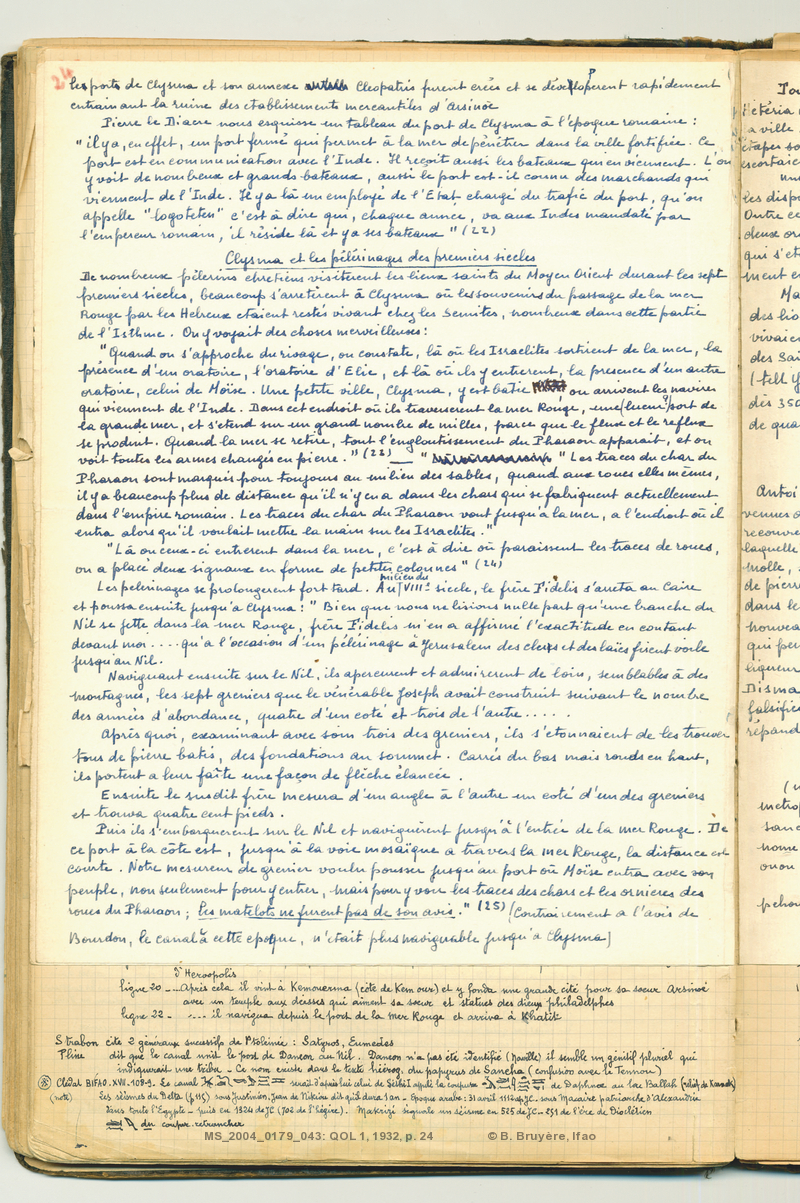 24
les ports de Clysma et son annexe Cleopatris furent créés et se développerent rapidement
entrainant la ruine des etablissements mercantiles d'Arsinoe
Pierre le Diacre nous esquisse un tableau du port de Clysma à l'époque romaine :
"il y a, en effet, un port fermé qui permet à la mer de pénétrer dans la ville fortifiée. Ce
port est en communication avec l'Inde. Il reçoit aussi les bateaux qui en viennent. L'on
y voit de nombreux et grands bateaux, aussi le port est-il connu des marchands qui
viennent de l'Inde. Il y a là un employé de l'Etat chargé du trafic du port, qu'on
appelle "logoteten" c'est à dire qui, chaque année, va aux Indes mandaté par
l'empereur romain, il réside là et y a ses bateaux" (22)
Clysma et les pélerinages des premiers siecles
De nombreux pélerins chretiens visitèrent les lieux saints du Moyen Orient durant les sept
premiers siecles, beaucoup s'arretèrent à Clysma où les souvenirs du passage de la mer
Rouge par les Hebreux etaient restés vivant chez les Semites, nombreux dans cette partie
de l'Isthme. On y voyait des choses merveilleuses :
"Quand on s'approche du rivage, on constate, là où les Israelites sortirent de la mer, la
présence d'un oratoire, l'oratoire d'Elie, et là où ils y entrerent, la presence d'un autre
oratoire, celui de Moïse. Une petite ville, Clysma, y est batie où arrivent les navires
qui viennent de l'Inde. Dans cet endroit où ils traverserent la mer Rouge, une (lueur?) sort de
la grande mer, et s'etend sur un grand nombre de milles, parce que le flux et le reflux
se produit. Quand la mer se retire, tout l'engloutissement du Pharaon apparait, et on
voit toutes les armes changés en pierre." (23) — " " Les traces du char du
Pharaon sont marqués pour toujours au milieu des sables, quand aux roues elles mêmes,
il y a beaucoup plus de distance qu'il n'y en a dans les chars qui se fabriquent actuellement
dans l'empire romain. Les traces du char du Pharaon vont jusqu'à la mer, a l'endroit où il
entra alors qu'il voulait mettre la main sur les Israelites."
"Là où ceux-ci entrerent dans la mer, c'est à dire où paraissent les traces de roues,
on a placé deux signaux en forme de petites colonnes" (24)
Les pelerinages se prolongerent fort tard. Au milieu du VIIIe siecle, le frère Fidelis s'arreta au Caire
et poussa ensuite jusqu'à Clysma : " Bien que nous ne lisions nulle part qu'une branche du
Nil se jette dans la mer Rouge, frère Fidelis m'en a affirmé l'exactitude en contant
devant moi .... qu'a l'occasion d'un pélerinage à Jerusalem des clercs et des laïcs firent voile
jusqu'au Nil.
Naviguant ensuite sur le Nil, ils apercurent et admirerent de loin, semblables à des
montagnes, les sept greniers que le vénérable Joseph avait construit suivant le nombre
des années d'abondance, quatre d'un coté et trois de l'autre .....
Après quoi, examinant avec soin trois des greniers, ils s'etonnaient de les trouver
tous de pierre batis, des fondations au sommet. Carrés du bas mais ronds en haut,
ils portent a leur faîte une façon de flêche élancée.
Ensuite le susdit frère mesura d'un angle à l'autre un coté d'un des greniers
et trouva quatre cent pieds.
Puis ils s'embarquerent sur le Nil et naviguèrent jusqu'à l'entrée de la mer Rouge. De
ce port à la côte est, jusqu'à la voie mosaïque a travers la mer Rouge, la distance est
courte. Notre mesureur de grenier voulu pousser jusqu'au port où Moïse entra avec son
peuple, non seulement pour y entrer, mais pour y voir les traces des chars et les ornieres des
roues du Pharaon ; les matelots ne furent pas de son avis." (25) [Contrairement a l'avis de
Bourdon, le canal à cette epoque, n'était plus naviguable jusqu'à Clysma]
d'Heroopolis
ligne 20 - ...Après cela il vint à Kemouerma (côte de Kem our) et y fonda une grande cité pour sa soeur Arsinoé
avec un temple aux déesses qui aiment sa soeur et statues des dieux philadelphes
ligne 22 - .... il navigua depuis le port de la mer Rouge et arriva à Khatit
Strabon cite 2 généraux sucessifs de Ptolémée : Satyros, Eumedes
Pline dit que le canal unit le port de Daneon au Nil. Daneon n'a pas été identifié (Naville) il semble un génitif pluriel qui
indiquerait une tribu - Ce nom existe dans le texte hiérog. du papyrus de Sancha (confusion avec le Tennou)
Clédat BIFAO. XVII. 108-9. Ce canal serait d'après lui celui de Séthi I appelé la coupure de Daphnae au lac Ballah (reliefs de Karnak)
(note) Les séismes du Delta (p 115) sous Justinien, Jean de Nikiou dit qu'il dura 1 an - Epoque arabe : 31 avril 1112 ap JC. sous Macaire patriarche d'Alexandrie
dans toute l'Egypte - puis en 1324 de JC (702 de l'hégire). Makrizi signale un séisme en 525 de JC - 251 de l'ère de Dioclétien
du couper - retrancher
MS_2004_0179_043: QOL 1, 1932, p. 24 © B. Bruyère, Ifao